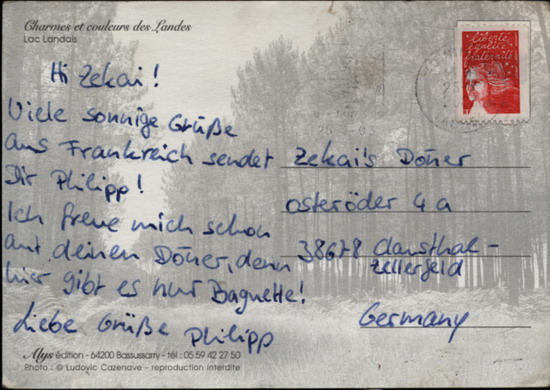 Charmes et couleurs des Landes
Lac Landais
Hi Zekai!
Viele sonnige Grüße
aus Frankreich sendet
Dir Philipp!
Ich freue mich schon
auf deinen Döner, denn
hier gibt es nur Baguette!
Liebe Grüße Philipp
Liberté
égalité
fraternité
Zekai's Döner
osteröder 4a
38678 Clausthal-
Zellerfeld
Germany
Alys édition - 64200 Bassussarry - tél : 05 59 42 27 50
Photo : © Ludovic Cazenave - reproduction interdite